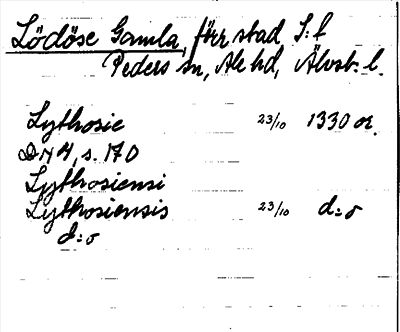 Lödöse Gamla, förr stad, S:t
Peders sn, Ale hd, Älvsb. l.
Lythosie 23/10 1330 or.
DN 4, s. 170
Lythosiensi
Lythosiensis 23/10 d:o
d:o